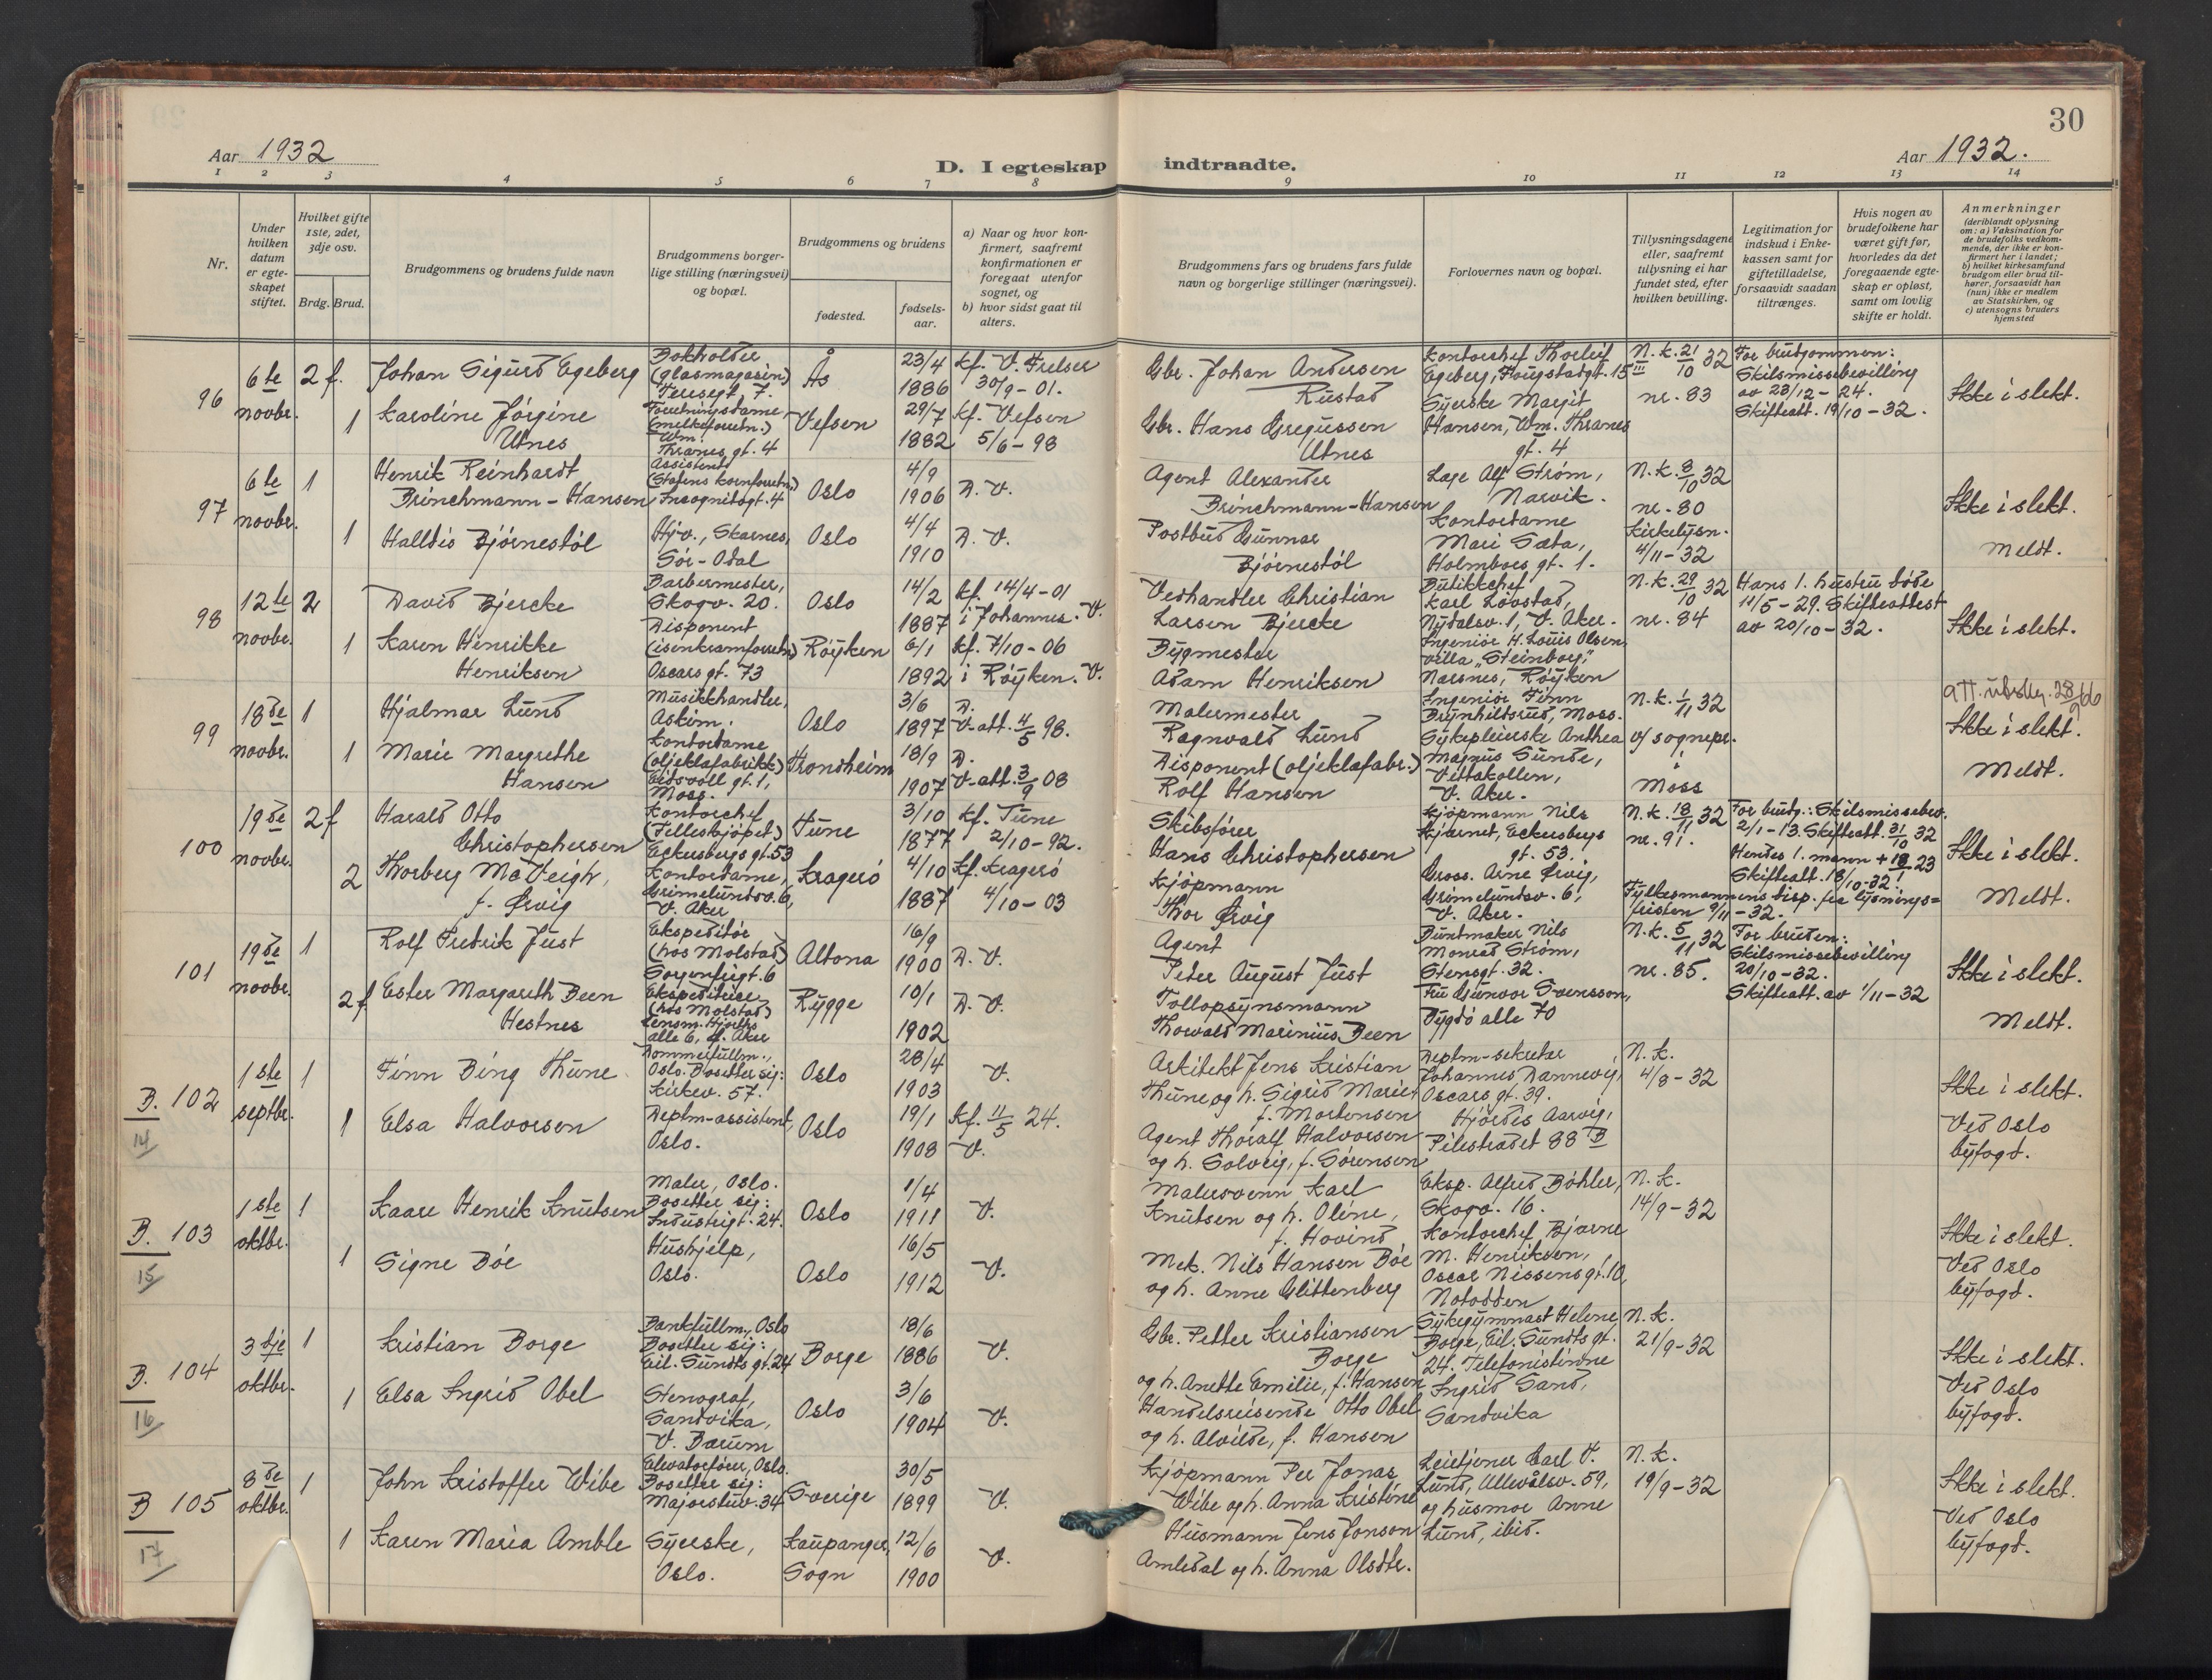 30
Aar 1932
D. I egteskap indtraadte.
Aar 1932.
1 2 3 4 5 6 7 8 9 10 11 12 13 14
Nr.
Under hvilken datum er egteskapet stiftet.
Hvilket gifte 1ste, 2det, 3dje osv.
Brdg. Brud.
Brudgommens og brudens fulde navn
Brudgommens borgerlige stilling (næringsvei) og bopæl.
Brudgommens og brudens
fødested.
fødselsaar.
a) Naar og hvor konfirmert, saafremt konfirmationen er foregaat utenfor sognet, og
b) hvor sidst gaat til alters.
Brudgommens fars og brudens fars fulde navn og borgerlige stillinger (næringsvei).
Forlovernes navn og bopæl.
Tillysningsdagene eller, saafremt tillysning ei har fundet sted, efter hvilken bevilling.
Legitimation for indskud i Enkekassen samt for giftetilladelse, forsaavidt saadan tiltrænges.
Hvis nogen av brudefolkene har været gift før, hvorledes da det foregaaende egteskap er opløst, samt om lovlig skifte er holdt.
Anmerkninger (deriblandt oplysning om: a) Vaksination for de brudefolks vedkommende, der ikke er konfirmert her i landet; b) hvilket kirkesamfund brudgom eller brud tilhører, forsaavidt han (hun) ikke er medlem av Statskirken, og c) utensogns bruders hjemsted
96 6te novbr. 2 f. Johan Sigurd Egeberg
Bokholder (glasmagasin) Teresegt. 7.
Ås 23/4 1886 Kf. V. Frelser 30/9-01.
Gbr. Johan Andersen Rustad
Kontorchef Thorleif Egeberg, Fougstadgt. 15 III
N.k. 21/10 32 nr. 83
For brudgommen: Skilsmissebevilling av 23/12-24. Skifteatt. 19/10-32.
Ikke i slekt.
1 Karoline Jörgine Utnes
Forretningsdame (melkeforretn.) Wm. Thranes gt. 4
Vefsen 29/7 1882 Kf. Vefsen 5/6-98
Gbr. Hans Gregussen Utnes
Syerske Margit Hansen, Wm. Thranes gt. 4
97 6te novbr. 1 Henrik Reinhardt Brinchmann-Hansen
Assistent (Statens kornforretn.) Incognitogt. 4
Oslo 4/9 1906 D. V.
Agent Alexander Brinchmann-Hansen
Læge Alf Strøm, Narvik.
N.k. 8/10 32 nr. 80
Ikke i slekt.
1 Halldis Bjørnestöl
Hjv., Skarnes, Sör-Odal
Oslo 4/4 1910 D. V.
Postbud Gunnar Bjørnestöl
Kontordame Mari Sæta, Holmboes gt. 1.
Kirkelysn. 4/11-32
Meldt.
98 12te novbr. 2 David Bjercke
Barbermester, Skogv. 20.
Oslo 14/2 1887 Kf. 14/4-01 i Johannes. V.
Vedhandler Christian Larsen Bjercke
Butikkchef Karl Lövstad, Nydalsv. 1, V. Aker.
N.k. 29/10 32 nr. 84
Hans 1. hustru døde 11/5-29. Skifteattest av 20/10-32.
Ikke i slekt.
1 Karen Henrikke Henriksen
Disponent (isenkramforretn.) Oscarsgt. 73
Röyken 6/1 1892 Kf. 7/10-06 i Röyken. V.
Bygmester Adam Henriksen
Ingeniør H. Louis Olsen, villa "Steinborg", Narsnes, Röyken
99 18de novbr. 1 Hjalmar Lund
Musikkhandler, Askim.
Oslo 3/6 1897 D. V-att. 4/5 98.
Malermester Ragnvald Lund
Ingeniør Finn Brynhildsrud, Moss.
N.k. 1/11 32
att. utsty. 28/9 66
Ikke i slekt.
1 Marie Margrethe Hansen
Kontordame (oljeklæfabrikk) Eidsvoll gt. 1, Moss.
Trondheim 18/9 1907 D. V-att. 3/9 08
Disponent (oljeklæfabr.) Rolf Hansen
Sykepleierske Anthea Magnus Sunde, Vettakollen, V. Aker.
v/ sognepr. i Moss
Meldt.
100 19de novbr. 2 f Harald Otto Christophersen
Kontorchef (Felleskjöpet) Eckersbergs gt. 53
Tune 3/10 1877 Kf. Tune 2/10-92.
Skibsfører Hans Christophersen
Kjöpmann Nils Kjærnet, Eckersbergs gt. 53.
N.k. 18/11 32 nr. 91.
For brudg.: Skilsmissebev. 2/1-13. Skifteatt. 31/10 32
Ikke i slekt.
2 Thorberg Mc Veigh, f. Ørvig
Kontordame, Grimelundsv. 6, V. Aker
Kragerö 4/10 1887 Kf. Kragerö 4/10-03
Kjöpmann Thor Ørvig
Gross. Arne Ørvig, Grimelundsv. 6, V. Aker.
Hendes 1. mann + 23 Skifteatt. 18/10-32!
Fylkesmannens disp. fra lysningsfristen 9/11-32.
Meldt.
101 19de novbr. 1 Rolf Fredrik Just
Ekspeditör (hos Molstad) Sorgenfrigt. 6
Altona 16/9 1900 D. V.
Agent Peter August Just
Buntmaker Nils Monrad Strøm, Stensgt. 32.
N.k. 5/11 32 nr. 85.
For bruden: Skilsmissebevilling 20/10-32. Skifteatt. av 1/11-32
Ikke i slekt.
2 f Ester Margareth Been Hestnes
Ekspeditrice (hos Molstad) Lensm. Hjorths alle 6, V. Aker
Rygge 10/1 1902 D. V.
Tollopsynsmann Thorvald Marinius Been
Fru Gunvor Svensson, Bygdö alle 70
Meldt.
B. 14 102 1ste septbr. 1 Finn Bing Thune
Dommerfullm., Oslo. Bosetter sig: Kirkev. 57.
Oslo 28/4 1903 V.
Arkitekt Jens Kristian Thune og h. Sigrid Marie, f. Mortensen
Deptm-sekretær Johannes Dannevig, Oscars gt. 39.
N.k. 4/8-32
Ikke i slekt.
Ved Oslo byfogd.
1 Elsa Halvorsen
Deptm-assistent, Oslo.
Oslo 19/1 1908 Kf. 11/5 24. V.
Agent Thoralf Halvorsen og h. Solveig, f. Sørensen
Hjørdis Aarvig, Pilestrædet 88 B
B. 15 103 1ste oktbr. 1 Kaare Henrik Knutsen
Maler, Oslo. Bosetter sig: Industrigt. 24.
Oslo 1/4 1911 V.
Malersvenn Karl Knutsen og h. Oline, f. Hovind
Eksp. Alfred Böhler, Skogv. 16.
N.k. 14/9-32
Ikke i slekt.
Ved Oslo byfogd.
1 Signe Böe
Hushjelp, Oslo.
Oslo 16/5 1912 V.
Mek. Nils Hansen Böe og h. Anne Glittenberg
Kontorchef Bjarne M. Henriksen, Oscar Nissens gt. 10, Notodden
B. 16 104 3dje oktbr. 1 Kristian Borge
Bankfullm., Oslo Bosetter sig: Eil. Sundts gt. 24
Borge 18/6 1886 V.
Gbr. Petter Kristiansen Borge og h. Anette Emilie, f. Hansen
Sykegymnast Helene Borge, Eil. Sundts gt. 24.
N.k. 21/9-32
Ikke i slekt.
Ved Oslo byfogd.
1 Elsa Ingrid Obel
Stenograf, Sandvika, V. Bærum
Oslo 3/6 1904 V.
Handelsreisende Otto Obel og h. Alvilde, f. Hansen
Telefonistinne Ingrid Sand, Sandvika
B 17 105 8de oktbr. 1 John Kristoffer Wibe
Elevatorfører, Oslo. Bosetter sig: Majorstuv. 34
Sverige 30/5 1899 V.
Kjöpmann Per Jonas Wibe og h. Anna Kristine
Leietjener Carl V. Lund, Ullevålsv. 59,
N.k. 19/9-32
Ikke i slekt.
Ved Oslo byfogd.
1 Karen Maria Amble
Syerske, Oslo.
Kaupanger, Sogn 12/6 1900 V.
Husmann Jens Jonson Amledal og h. Anna Olsdtr.
og husmor Anne Lund, ibid.